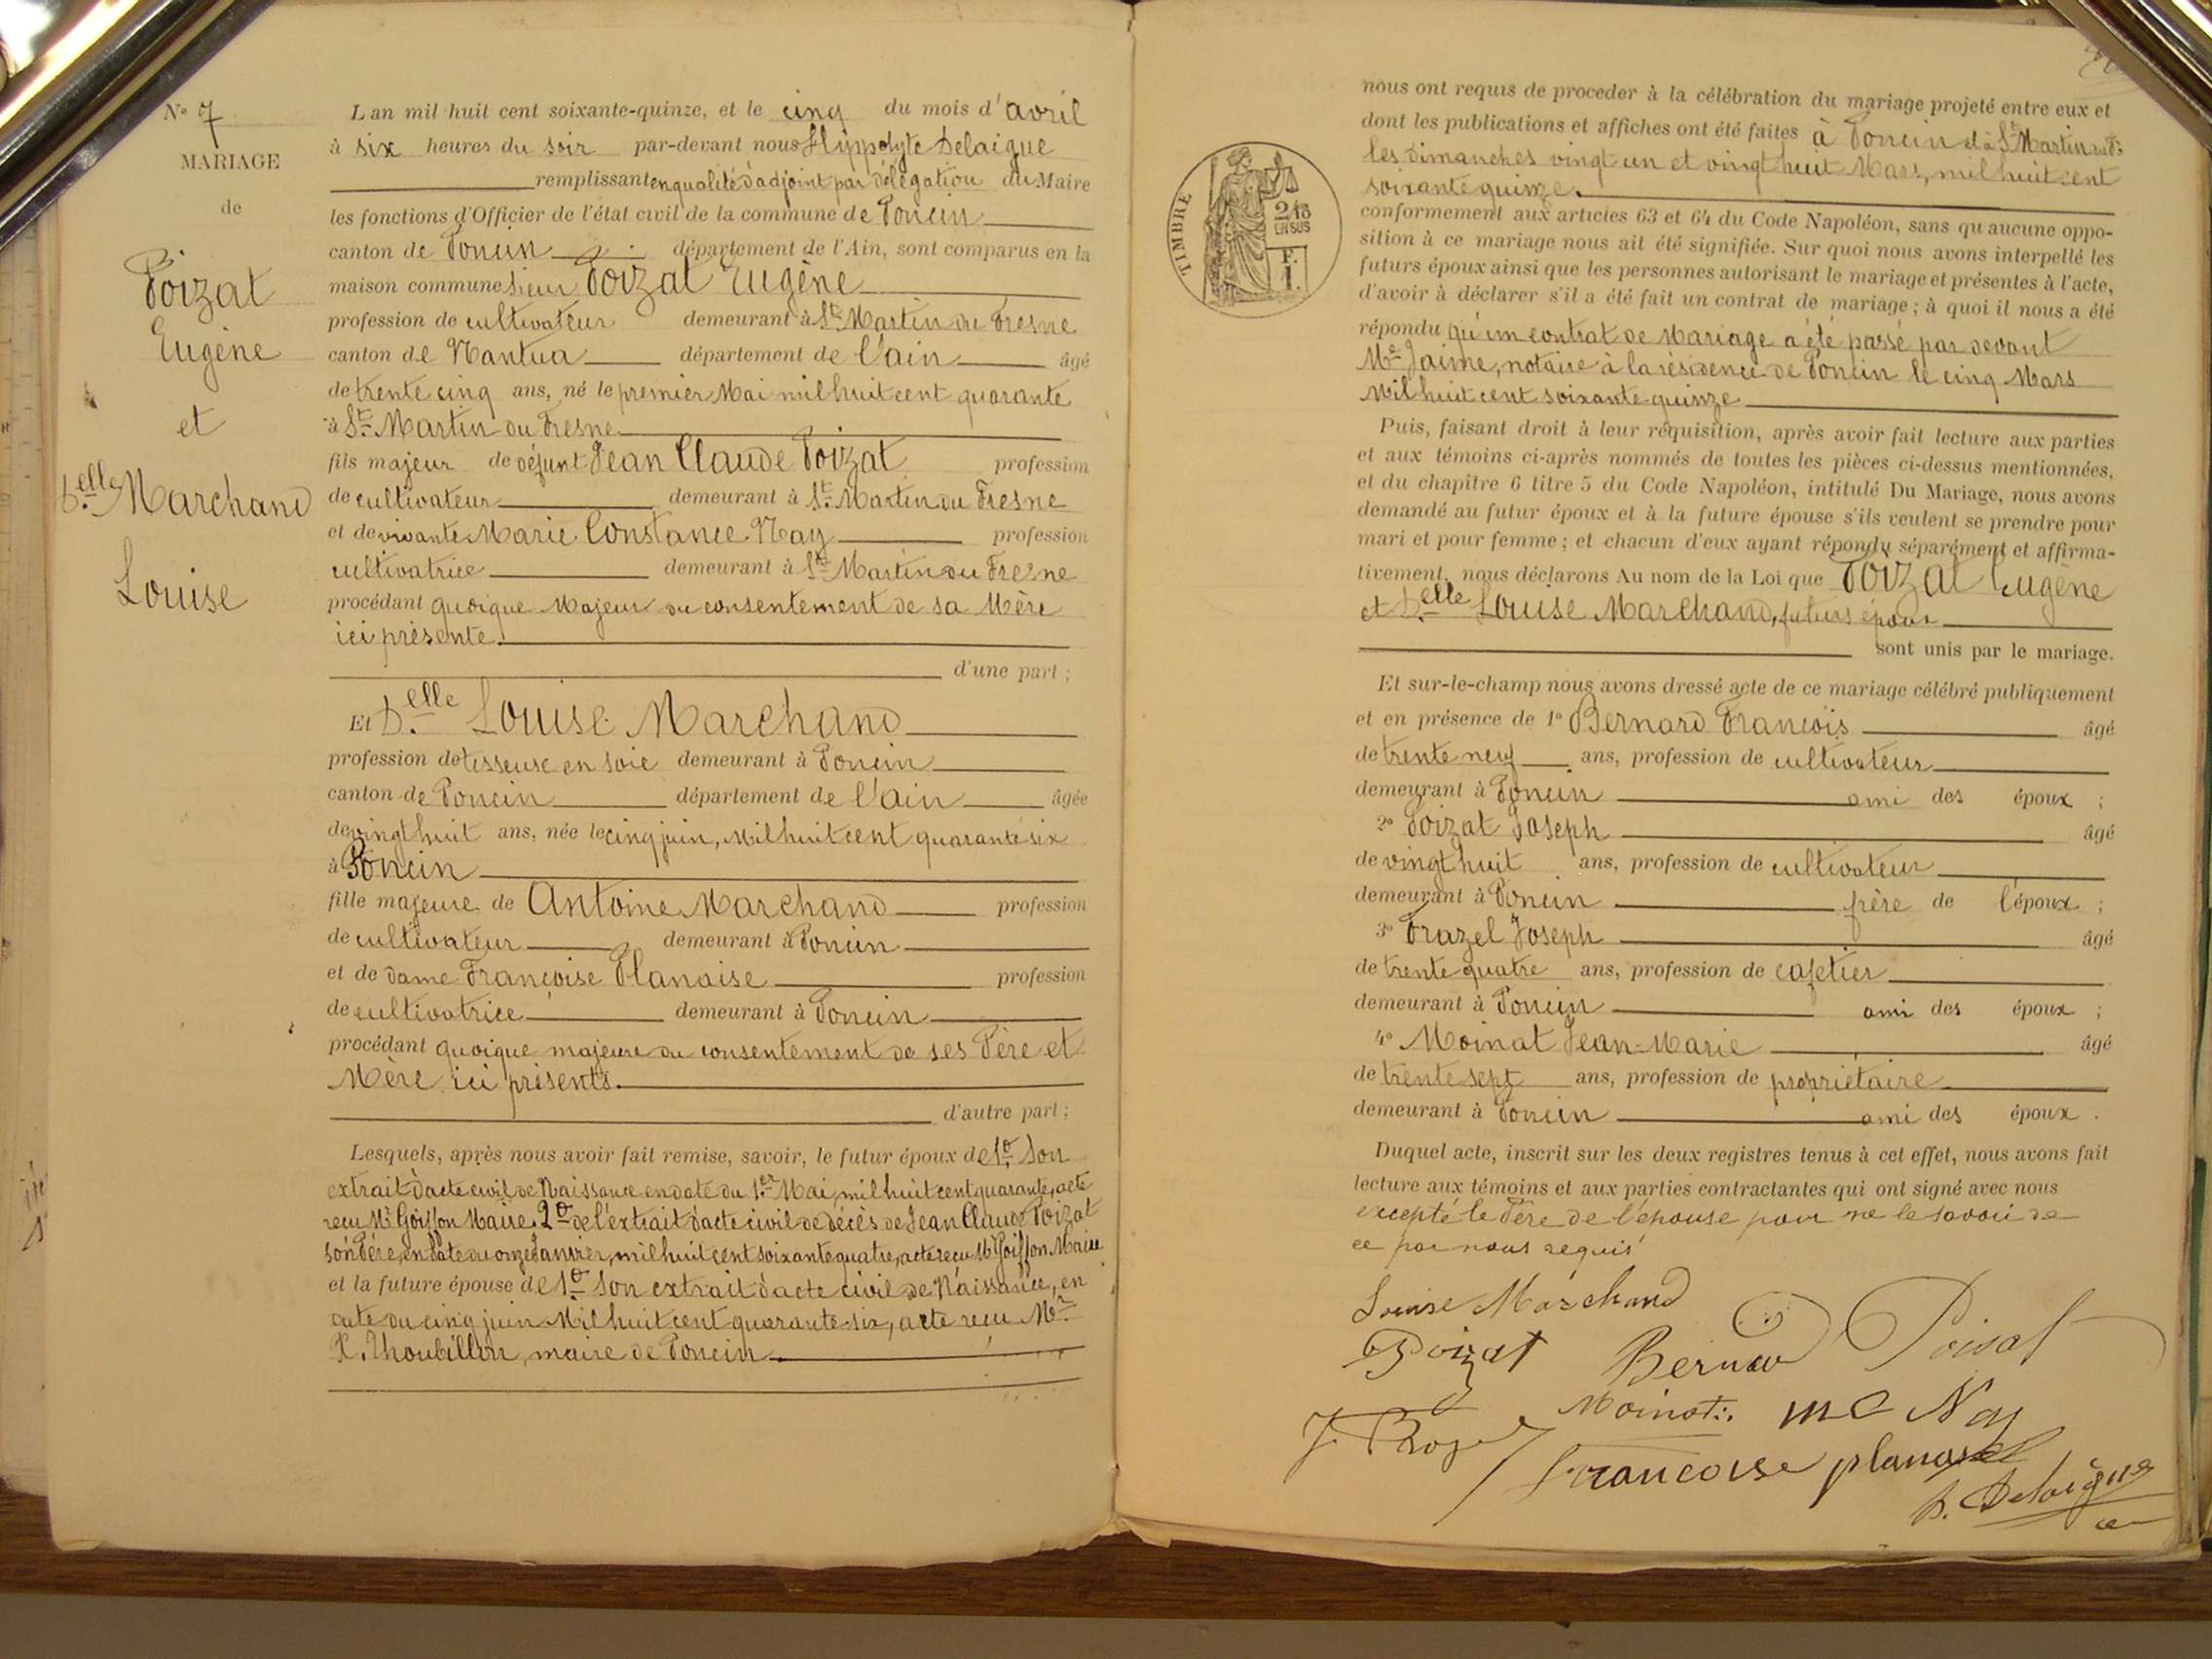 N° 7
MARIAGE
de
Poizat
Eugène
et
D.elle Marchand
Louise
L'an mil huit cent soixante-quinze, et le cinq du mois d'avril
à six heures du soir par-devant nous Hippolyte Delaigue
remplissant en qualité d'adjoint par délégation du Maire
les fonctions d'Officier de l'état civil de la commune de Poncin
canton de Poncin département de l'Ain, sont comparus en la
maison commune sieur Poizat Eugène
profession de cultivateur demeurant à St Martin du Fresne
canton de Nantua département de l'ain âgé
de trente cinq ans, né le premier Mai mil huit cent quarante
à St Martin du Fresne
fils majeur de défunt Jean Claude Poizat profession
de cultivateur demeurant à St Martin du Fresne
et de vivante Marie Constance Nay profession
cultivatrice demeurant à St Martin du Fresne
procédant quoique Majeur du consentement de sa Mère
ici présente.
d'une part ;
Et D.elle Louise Marchand
profession de tisseuse en soie demeurant à Poncin
canton de Poncin département de l'ain âgée
de vingt huit ans, née le cinq juin, Mil huit cent quarante six
à Poncin
fille majeure de Antoine Marchand profession
de cultivateur demeurant à Poncin
et de dame Françoise Planaise profession
de cultivatrice demeurant à Poncin
procédant quoique majeure du consentement de ses Père et
Mère ici présents.
d'autre part ;
Lesquels, après nous avoir fait remise, savoir, le futur époux de 1° Son
extrait d'acte civil de Naissance en date du 1.er Mai, mil huit cent quarante, acte
reçu Mr Goiffon Maire. 2° de l'extrait d'acte civil de décès de Jean Claude Poizat
son Père, en date du onze Janvier, mil huit cent soixante quatre, acte reçu Mr Goiffon Maire
et la future épouse de 1° Son extrait d'acte civil de Naissance, en
date du cinq juin Mil huit cent quarante-six, acte reçu Mr
X. Thoubillon, maire de Poncin
nous ont requis de proceder à la célébration du mariage projeté entre eux et
dont les publications et affiches ont été faites à Poncin et à St Martin du F:
les dimanches vingt un et vingt huit Mars, mil huit cent
soixante quinze.
conformement aux articles 63 et 64 du Code Napoléon, sans qu'aucune oppo-
sition à ce mariage nous ait été signifiée. Sur quoi nous avons interpellé les
futurs époux ainsi que les personnes autorisant le mariage et présentes à l'acte,
d'avoir à déclarer s'il a été fait un contrat de mariage ; à quoi il nous a été
répondu qu'un contrat de Mariage a été passé par devant
Me Jaime, notaire à la résidence de Poncin le cinq Mars
Mil huit cent soixante quinze
Puis, faisant droit à leur réquisition, après avoir fait lecture aux parties
et aux témoins ci-après nommés de toutes les pièces ci-dessus mentionnées,
et du chapitre 6 titre 5 du Code Napoléon, intitulé Du Mariage, nous avons
demandé au futur époux et à la future épouse s'ils veulent se prendre pour
mari et pour femme ; et chacun d'eux ayant répondu séparément et affirma-
tivement, nous déclarons Au nom de la Loi que Poizat Eugène
et D.elle Louise Marchand, futurs époux
sont unis par le mariage.
Et sur-le-champ nous avons dressé acte de ce mariage célébré publiquement
et en présence de 1° Bernard François âgé
de trente neuf ans, profession de cultivateur
demeurant à Poncin ami des époux ;
2° Poizat Joseph âgé
de vingt huit ans, profession de cultivateur
demeurant à Poncin frère de l'époux ;
3° Frazel Joseph âgé
de trente quatre ans, profession de cafetier
demeurant à Poncin ami des époux ;
4° Moinat Jean-Marie âgé
de trente sept ans, profession de propriétaire
demeurant à Poncin ami des époux .
Duquel acte, inscrit sur les deux registres tenus à cet effet, nous avons fait
lecture aux témoins et aux parties contractantes qui ont signé avec nous
excepté le Père de l'épouse pour ne le savoir de
ce par nous requis
Louise Marchand
Poizat Bernard Poisat
Moinat mc Nay
J.
francoise planaise
h. Delaigue
TIMBRE
2/10
EN SUS
F.
1.